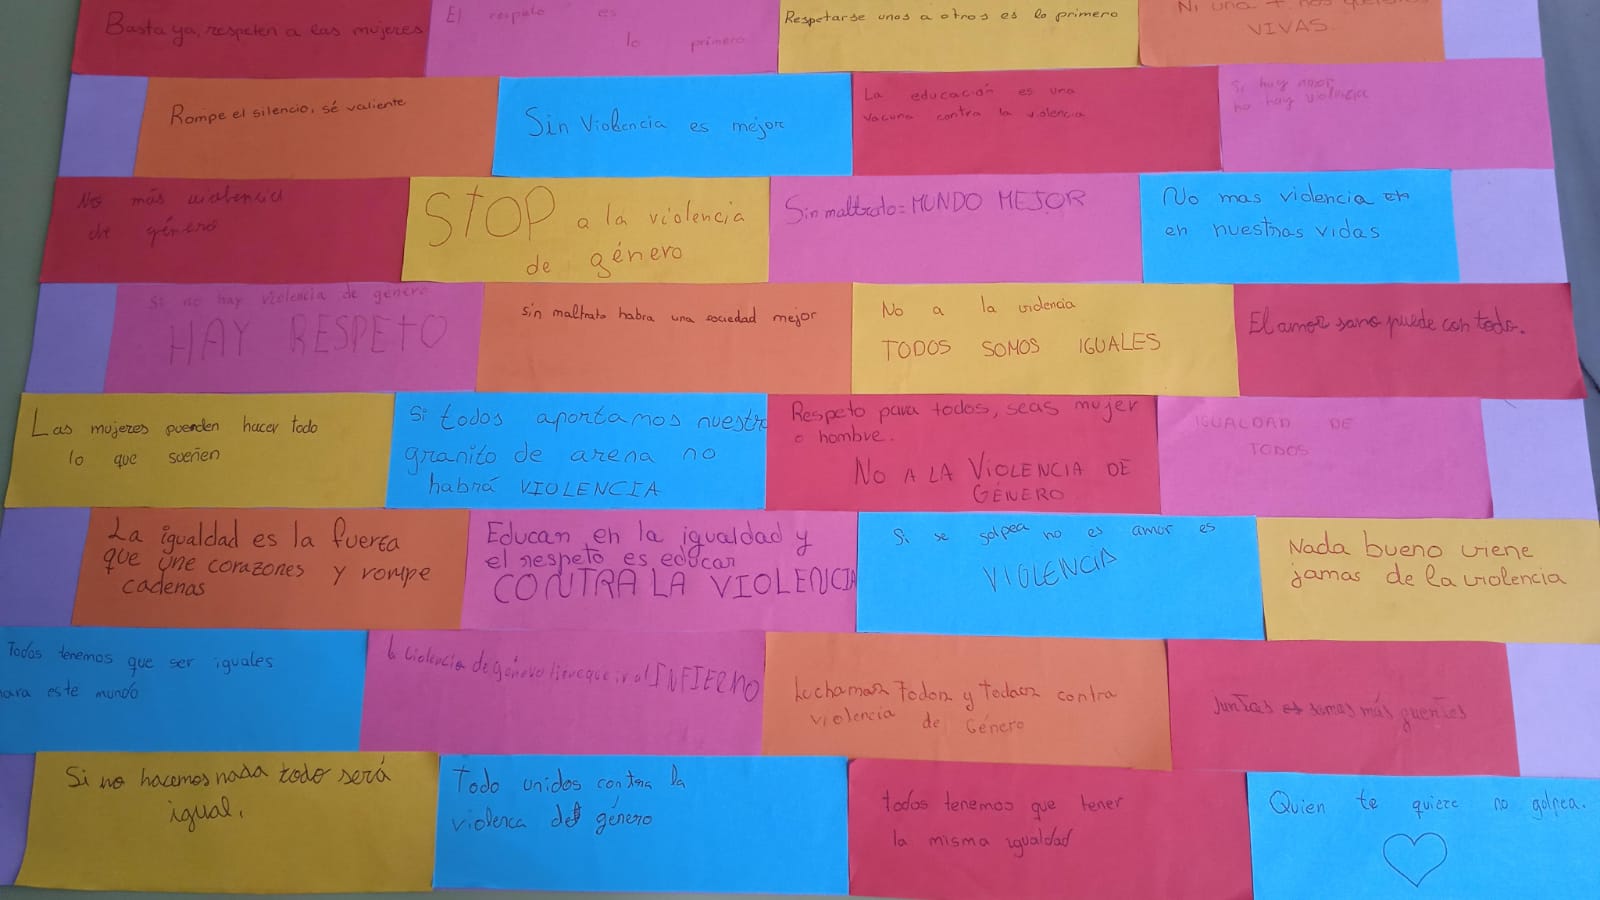 Basta ya, respeten a las mujeres
El respeto es
lo primero
Respetarse unos a otros es lo primero
Ni una + nos queremos
VIVAS.
Rompe el silencio, sé valiente
Sin Violencia es mejor
La educación es una
vacuna contra la violencia
Si hay amor
no hay violencia
No más violencia
de género
STOP a la violencia
de género
Sin maltrato = MUNDO MEJOR
No mas violencia en
en nuestras vidas
Si no hay violencia de género
HAY RESPETO
Sin maltrato habra una sociedad mejor
No a la violencia
TODOS SOMOS IGUALES
El amor sano puede con todo.
Las mujeres pueden hacer todo
lo que sueñen
Si todos aportamos nuestro
granito de arena no
habrá VIOLENCIA
Respeto para todos, seas mujer
o hombre.
NO A LA VIOLENCIA DE
GÉNERO
IGUALDAD DE
TODOS
La igualdad es la fuerza
que une corazones y rompe
cadenas
Educar en la igualdad y
el respeto es educar
CONTRA LA VIOLENCIA
Si se golpea no es amor es
VIOLENCIA
Nada bueno viene
jamas de la violencia
Todos tenemos que ser iguales
para este mundo
la violencia de género tiene que ir al INFIERNO
Luchamos Todos y Todas contra
violencia de Género
Juntas somos más fuertes
Si no hacemos nada todo será
igual.
Todo unidos contra la
violenca de género
todos tenemos que tener
la misma igualdad
Quien te quiere no golpea.